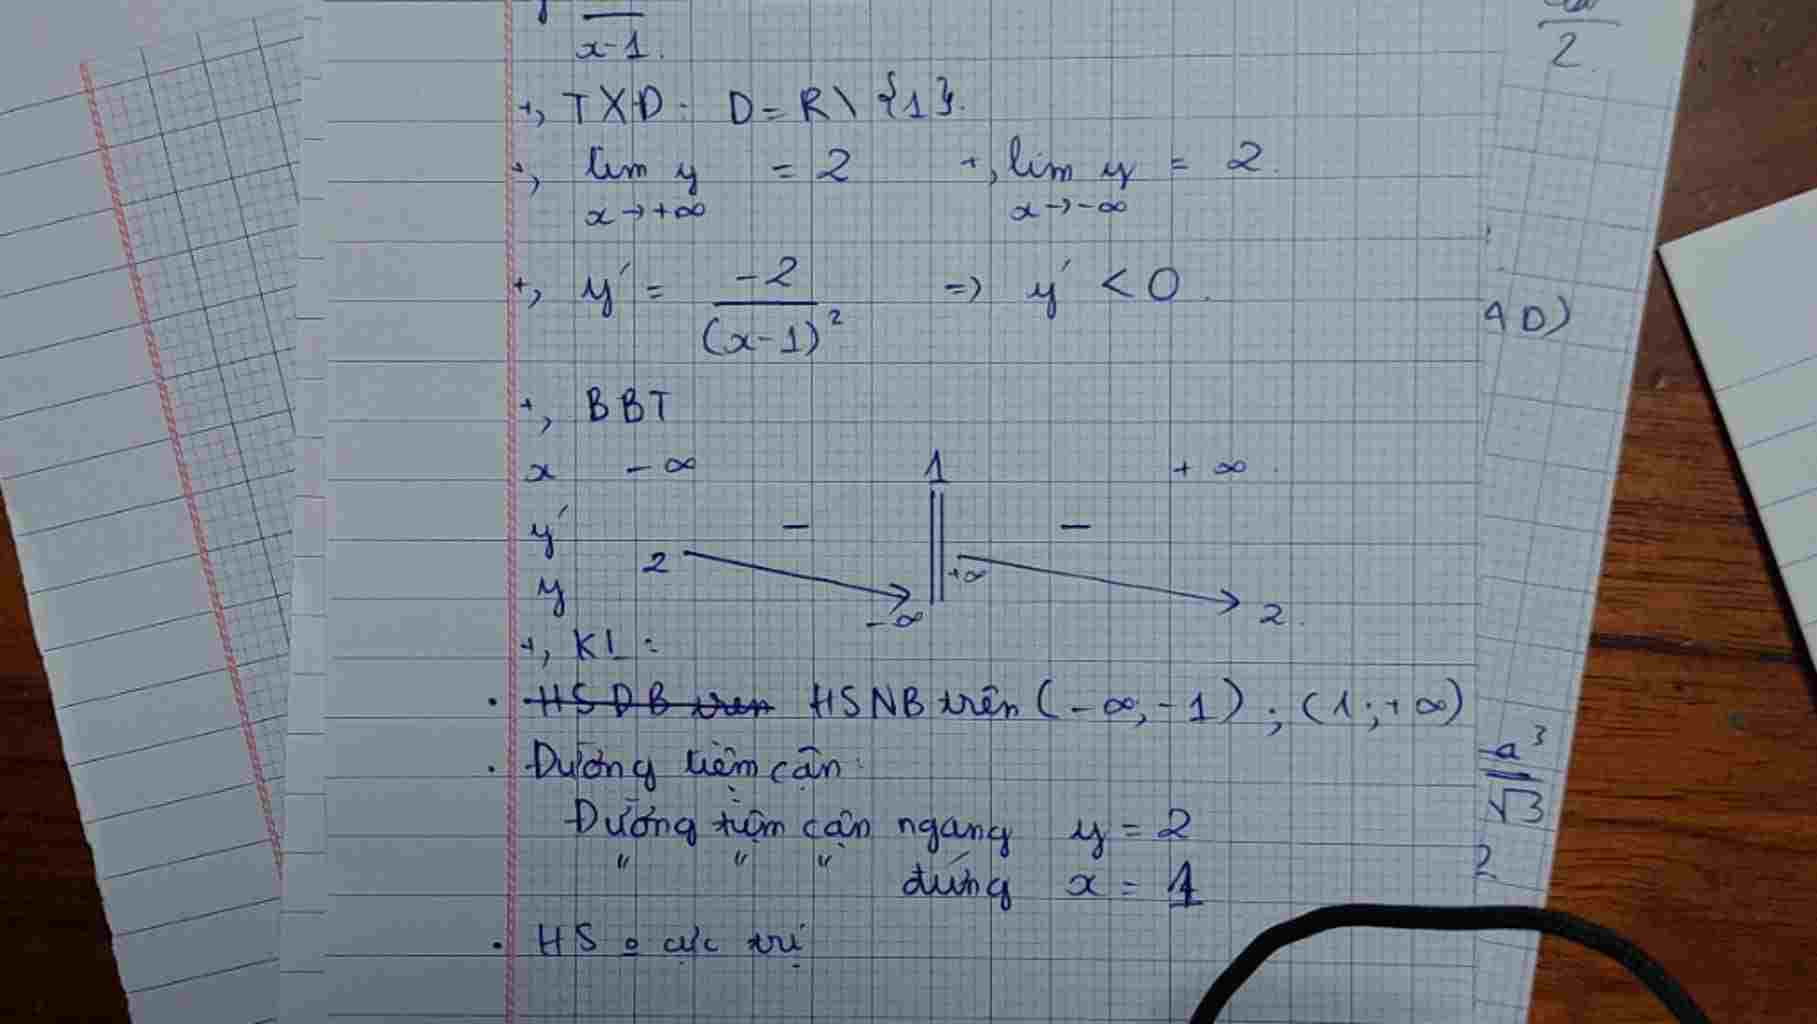 x-1.
+, TXD: D = R \ {1}.
+, lim y = 2 +, lim y = 2.
x→+∞ x→-∞
+, y' = -2/(x-1)² => y' < 0.
+, BBT
x -∞ 1 +∞
y' - -
y 2 -∞ +∞ 2.
+, KL:
. HSDB trên HSNB trên (-∞,-1); (1;+∞)
. Đường tiệm cận:
Đường tiệm cận ngang y = 2
" " " đứng x = 1
. HS o cực trị
2.
4D)
a³
√3
2